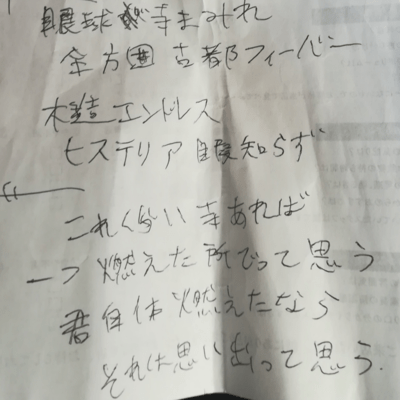 眼球が寺まみれ
全方囲古都フィーバー
木造エンドレス
ヒステリア 暇知らず
これくらい寺あれば
一つ燃えた所でって思う
君自体燃えたなら
それは思い出って思う.